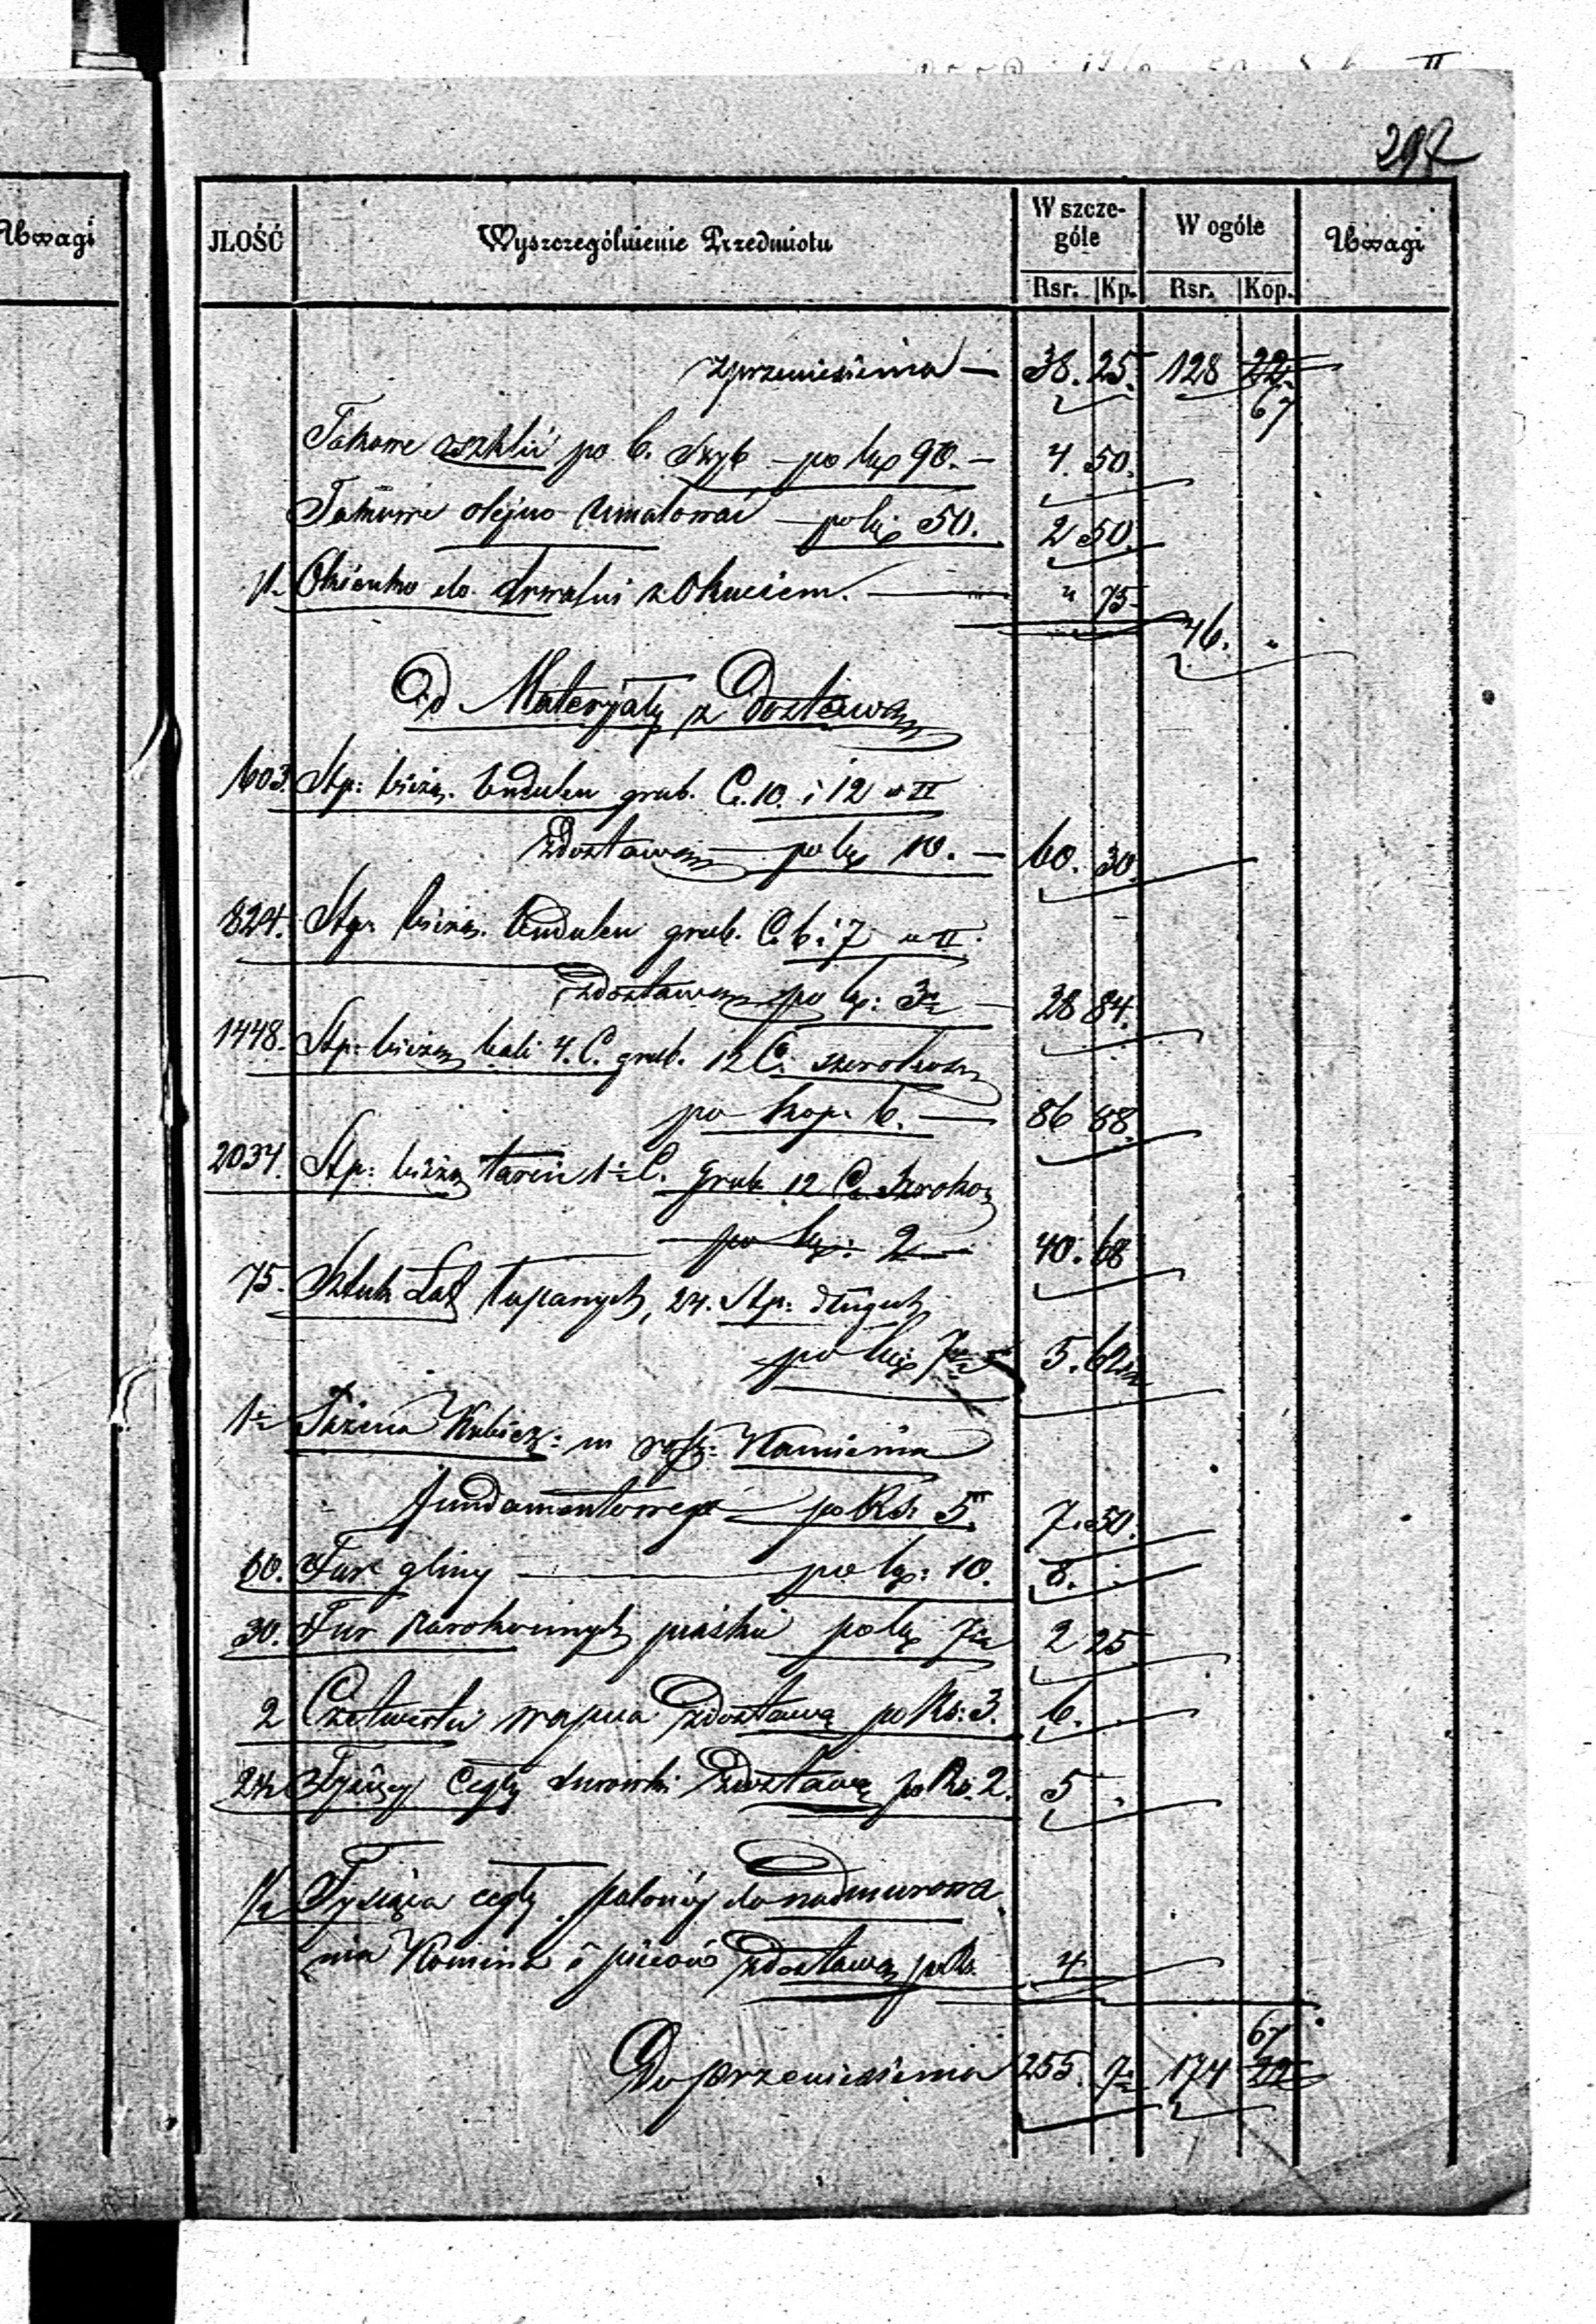 297
Uwagi
JŁOŚĆ Wyszczególnienie Przedmiotu W szcze- W ogóle Uwagi
góle
Rsr. Kp. Rsr. Kop.
zprzeniesienia — 38. 25. 128 22
67
Takowe oszklić po 6. Szyb — po kp 90. — 4. 50.
Takowe olejno umalować — po kp 50. 2 50.
1. Okienko do drwalni z Okuciem. — " 75
46. "
Od Materjały z Dostawą
603. Stp: bieżą. bnduku grub. C. 10. i 12 " II
z Dostawą — po kp 10. — 60. 30.
824. Stp. bieżą. bnduku grub. C. 6 i 7 " II.
z dostawą po kp: 3½ — 28 84.
1448. Stp. bieżą bali 4. C. grub. 12 C. szerokości
po kop. 6. — 86 88.
2034. Stp: bieżą tarcic 1½ C. grub. 12 C. Szeroko
po kp: 2 — 40. 68
75. Sztuk Łat łupanych, 24. Stp: długich
po kp 7½ 5. 62½
1½ Sążnia Kubicz: m Kamienia
fundamentowego — po Rs: 5. 7. 50.
60. Fur gliny — po kp: 10. 6.
30. Fur parokonnych piasku po kp 7½ 2 25
2 Czetwerti wapna z dostawą po Rs: 3. 6.
2½ Tysięcy Cegły surowki z dostawą po Rs. 2. 5 .
½ Tysiąca cegły palonéj do nadmurowa
nia Komina i pieców z dostawą po Rs. 4
67
Do przeniesienia 255. 7½ 174 22